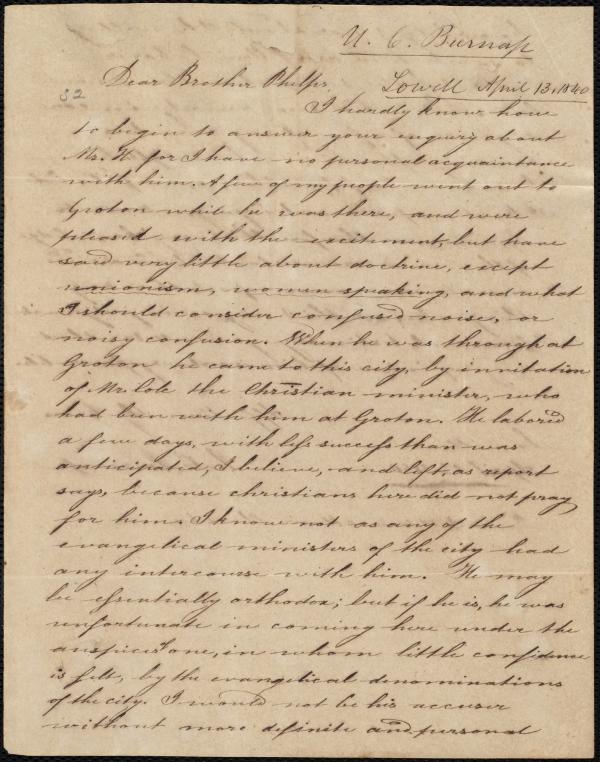 U. C. Burnap
Lowell April 13, 1840
Dear Brother Phelps,
52
I hardly know how
to begin to answer your enquiry about
Mr. H for I have no personal acquaintance
with him. A few of my people went out to
Groton while he was there, and were
pleased with the excitement, but have
said very little about doctrine, except
unionism, women speaking, and what
I should consider confused noise, or
noisy confusion. When he was through at
Groton he came to this city, by invitation
of Mr. Cole the Christian minister, who
had been with him at Groton. He labored
a few days, with less success than was
anticipated, I believe, and left, as report
says, because christians here did not pray
for him. I know not as any of the
evangelical ministers of the city had
any intercourse with him. He may
be essentially orthodox; but if he is, he was
unfortunate in coming here under the
auspices of one, in whom little confidence
is felt, by the evangelical denominations
of the city. I would not be his accuser
without more definite and personal